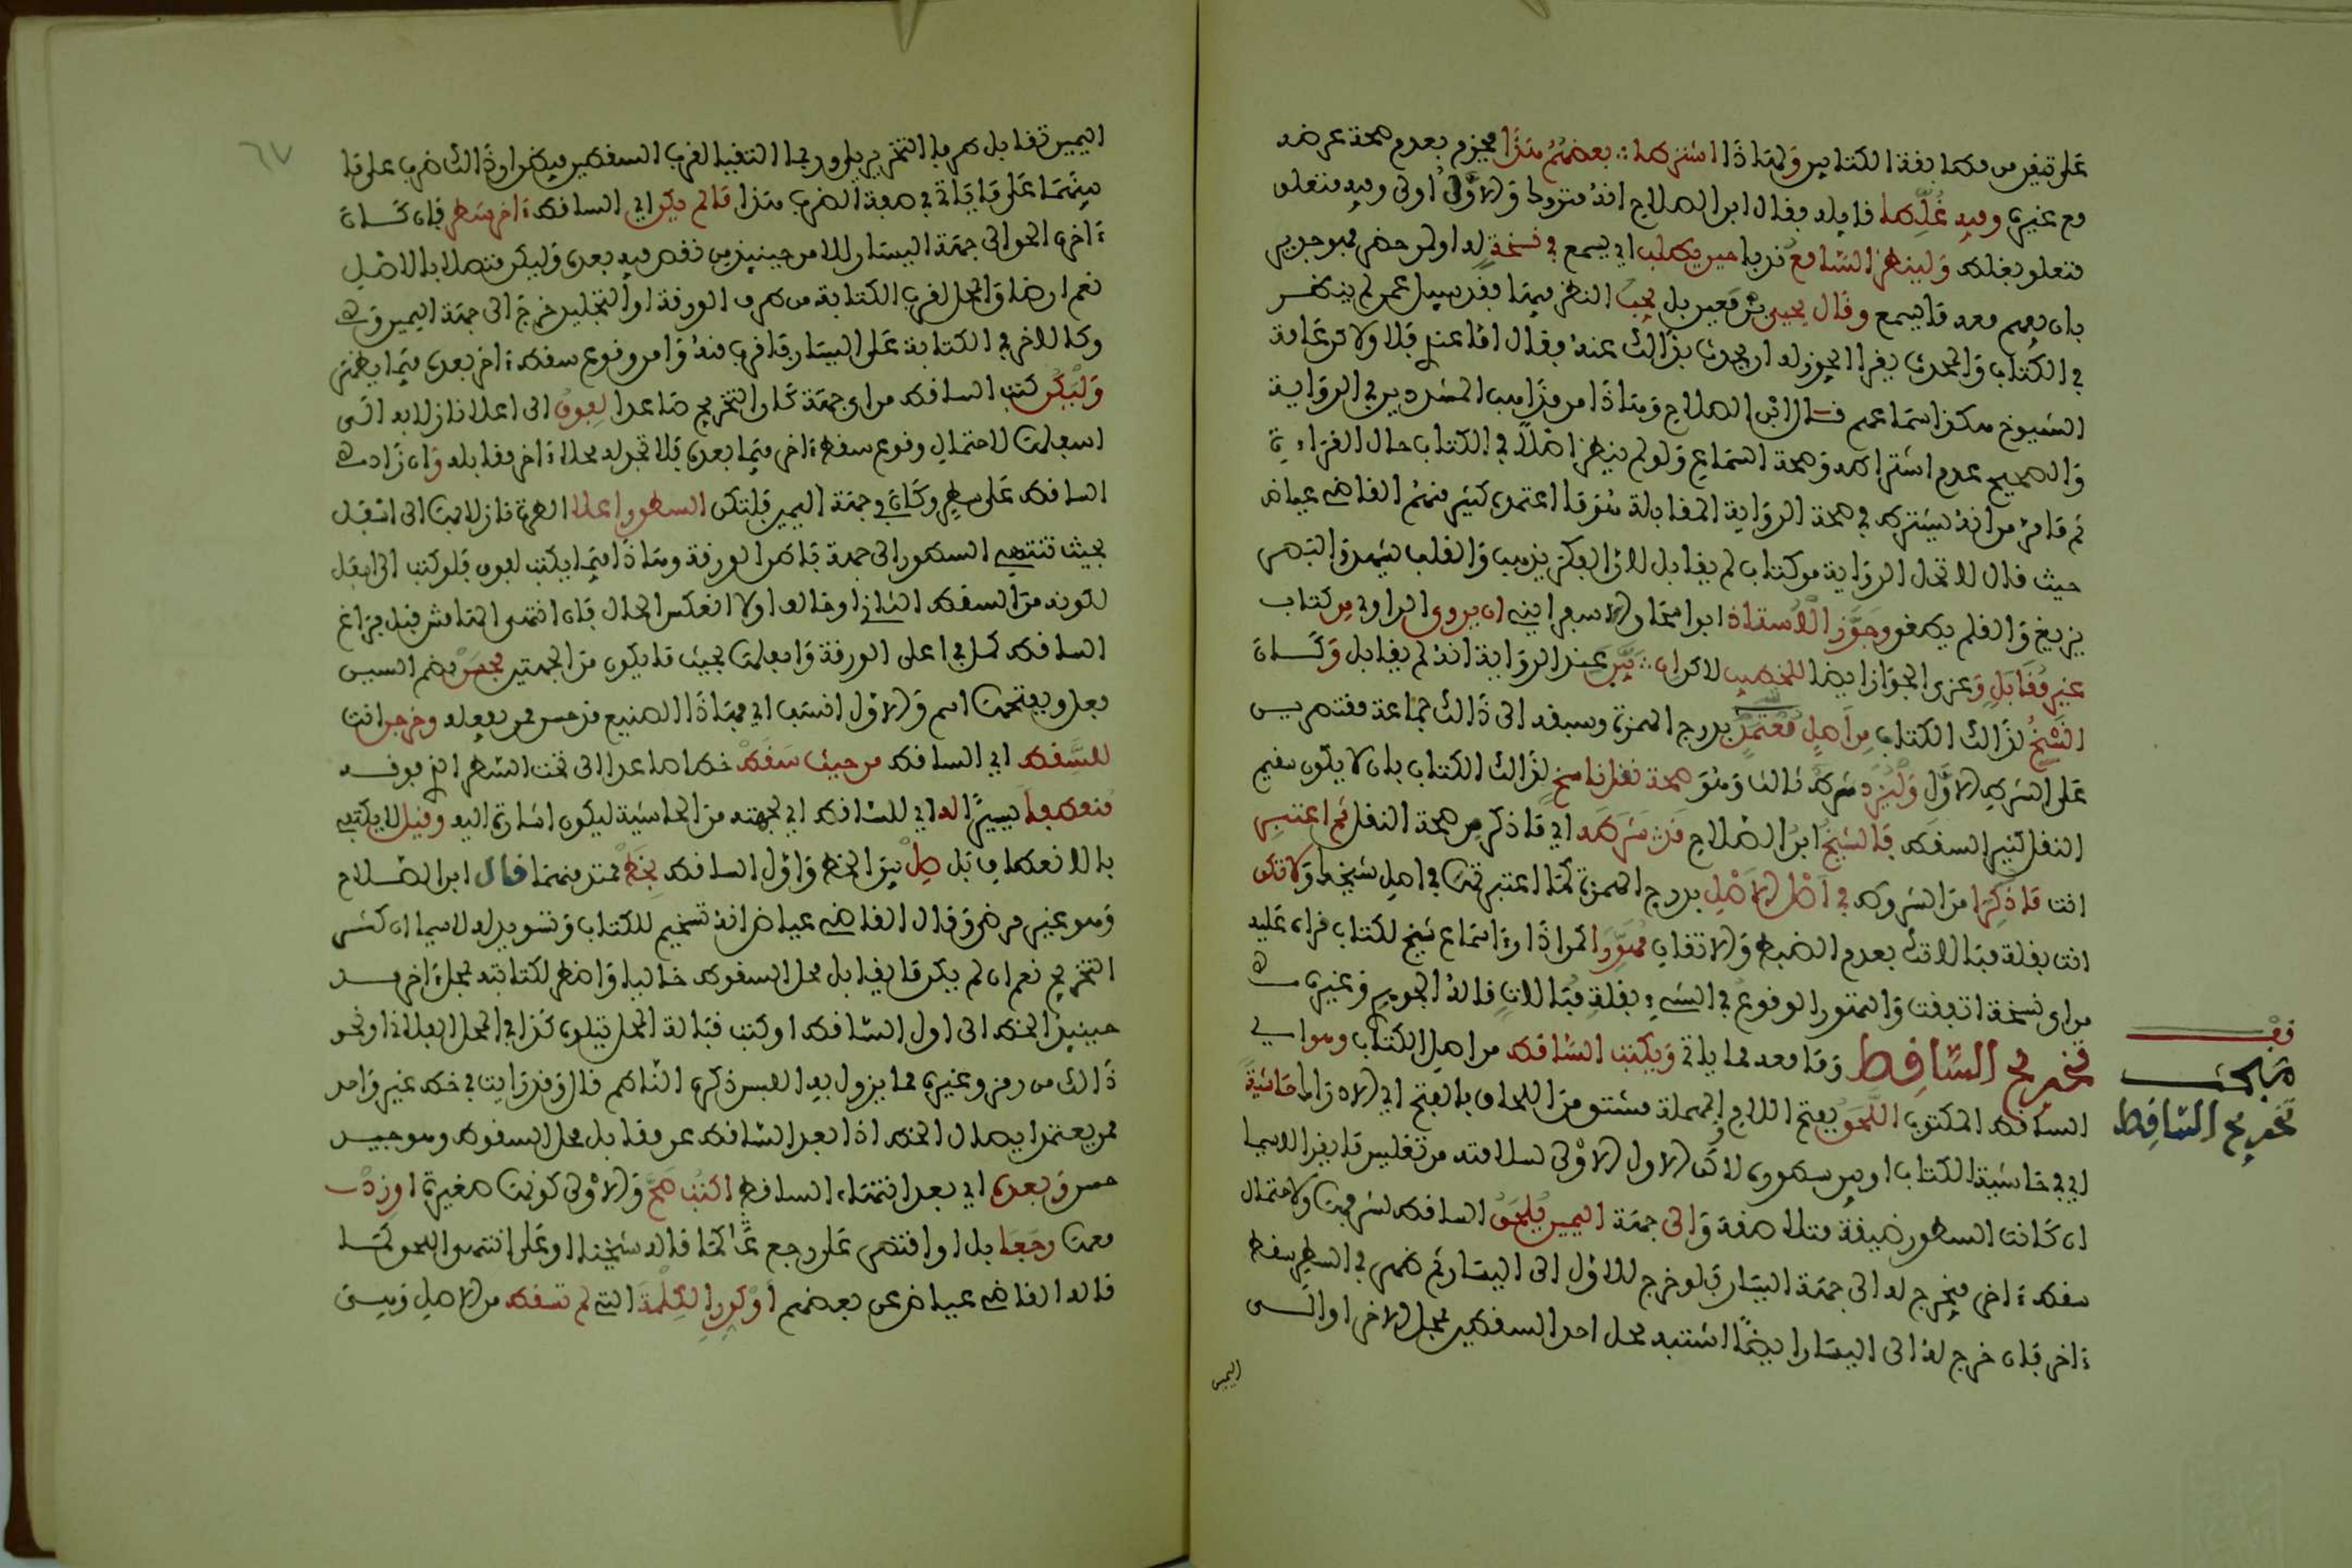 على تيقن من مطابقة الكتابين ولهذا اشترطه بعضهم هذا فجزم بعدم صحة عرضه
مع غيره وفيه غلطا قايله فقال ابن الصلاح انه متروك والاول اولى وفيه متعلق
متعلق بغلط ولينظر السامع ندبا حين يطلب اي يسمع في نسخة له او لمن حضر فهو جدير
بان يفهم معه ما يسمع وقال يحيى بن معين بل يجب النظر فيها فقد سيل عمن لم ينظر
في الكتاب والمحدث يقرا ايجوز له ان يحدث بذلك عنه فقال اما عندي فلا ولاكن عامة
الشيوخ هكذا سماعهم قال ابن الصلاح وهذا من مذاهب المشددين في الرواية
والصحيح عدم اشتراطه وصحة السماع ولو لم ينظر اصلا في الكتاب حال القراءة
ثم ما مر من انه يشترط في صحة الرواية المقابلة هو ما اعتمده كثير منهم القاضي عياض
حيث قال لا تحل الرواية من كتاب لم يقابل لان الفكر يذهب والقلب يسهو والبصر
يزيغ والقلم يطغو وجوز الاستاذ ابو اسحاق الاسفرايني ان يروي الراوي من كتاب
غير مقابل وعزي الجواز ايضا للخطيب لاكن ان بين عند الرواية انه لم يقابل وكان
النسخ لذلك الكتاب من اصل معتمد بدرج الهمزة وسبقه الى ذلك جماعة مقتصرين
على الشرط الاول وليزد شرط ثالث وهو صحة نقل ناسخ لذلك الكتاب بان لا يكون سقيم
النقل كثير السقط فالشيخ ابن الصلاح قد شرطه اي ما ذكر من صحة النقل ثم اعتبر
انت ما ذكرا من الشروط في اصل الاصل بدرج الهمزة كما اعتبرتها في اصل شيخك ولا تكن
انت بقلة مبالاتك بعدم الضبط والاتقان مهورا كمن اذا راى سماع شيخ لكتاب قراه عليه
من اي نسخة اتفقت والتهور الوقوع في الشيء بقلة مبالات قاله الجوهري وغيره
تخريج الساقط وما معه مما ياتي ويكتب الساقط من اصل الكتاب وهو اي
الساقط المكتوب اللحق بفتح اللام والمهملة مشتق من اللحاق بالفتح اي الادراك حاشية
اي في حاشية الكتاب او بين سطوره لاكن الاول الاولى لسلامته من تغليس ما يقرا لاسيما
ان كانت السطور ضيقة متلاصقة والى جهة اليمين يلحق الساقط لشرفها ولاحتمال
سقط ءاخر فيخرج له الى جهة اليسار فلو خرج للاول الى اليسار ثم ظهر في السطر سقط
ءاخر فان خرج له الى اليسار ايضا اشتبه محل احد السقطين بمحل الاخر او الى
اليمين
قف
مبحث
تخريج الساقط
٦٧
اليمين تقابل طرفا التخريجين وربما التقيا لقرب السقطين فيظن ان ذلك ضرب على ما
بينهما على ما ياتي في صفة الضرب هذا ما لم يكن اي الساقط ءاخر سطر فان كان
ءاخره الحق الى جهة اليسار للامن حينيذ من نقص فيه بعده وليكن متصلا بالاصل
نعم ان ضاق المحل لقرب الكتابة من طرف الورقة او التجليد خرج الى جهة اليمين وفي
وكالاخر في الكتابة على اليسار ما قرب منه وامن وقوع سقط ءاخر بعده فيما يظهر
وليكن كتب الساقط من اي جهة كان التخريج صاعدا لفوق الى اعلا نازلا به الى
اسفلها لاحتمال وقوع سقط ءاخر فيما بعده فلا تجد له محلا ءاخر مقابله وان زاد في
الساقط على سطر وكان في جهة اليمين فلتكن السطور اعلا الطرة نازلا بها الى اسفل
بحيث تنتهي السطور الى جهة باطن الورقة وهذا فيما يكتب لفوق فلو كتب الى اسفل
لكونه من السقط الثاني او خالف اولا انعكس الحال فان انتهى الهامش قبل فراغ
الساقط كمل في اعلى الورقة وافعلها بحيث ما يكون من الجهتين فحسن بضم السين
فعل وبفتحها اسم والاول انسب اي فهذا الصنيع قد حسن ممن يفعله وخرجن انت
للسقط اي الساقط من حيث سقط خطا صاعدا الى تحت السطر الذي فوقه
منعطفا يسيرا له اي للساقط اي لجهته من الحاشية ليكون اشارة اليه وقيل لا يكتفي
بالانعطاف بل صل بين الخط واول الساقط بخط ممتد بينهما قال ابن الصلاح
وهو غير مرضي وقال القاضي عياض انه تسخيم للكتاب وتسويد له لاسيما ان كثر
التخريج نعم ان لم يكن ما يقابل محل السقوط خاليا واضطر لكتابته بمحل ءاخر مد
حينيذ الخط الى اول الساقط او كتب قبالة المحل يتلوه كذا في المحل الفلاني او نحو
ذلك من رمز وغيره مما يزول به اللبس ذكره الناظم قال وقد رايت في خط غير واحد
ممن يعتمد ايصال الخط اذا بعد الساقط عن مقابل محل السقوط وهو جيد
حسن وبعده اي بعد انتهاء الساقط اكتب صح والاولى كونها صغيرة او زد
معها رجعا بل او اقتصر على رجع كما قاله شيخنا او على انتهى اللحق كما
قاله القاضي عياض عن بعضهم او كرر الكلمة التي لم تسقط من الاصل وهي